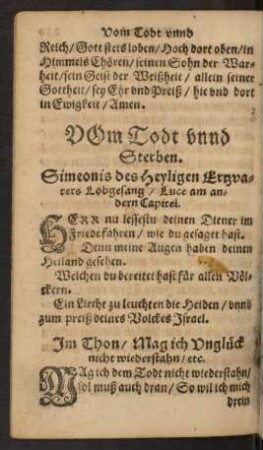 Vom Todt vnnd
Reich/ Gott stets loben/ Hoch dort oben/ in
Himmels Chören/ seinen Sohn der War-
heit/ sein Geist der Weißheit/ allein seiner
Gottheit/ sey Ehr vnd Preiß/ hie vnd dort
in Ewigkeit/ Amen.
VOm Todt vnnd
Sterben.
Simeonis des Heyligen Ertzva-
ters Lobgesang/ Luce am an-
dern Capitel.
HERR nu lessestu deinen Diener im
Friede fahren/ wie du gesaget hast.
Denn meine Augen haben deinen
Heiland gesehen.
Welchen du bereitet hast für allen Völ-
ckern.
Ein Liecht zu leuchten die Heiden/ vnnd
zum preiß deines Volckes Israel.
Im Thon/ Mag ich Vnglück
nicht wiederstahn/ etc.
MAg ich dem Todt nicht wiederstahn/
sol muß auch dran/ So wil ich mich
drein